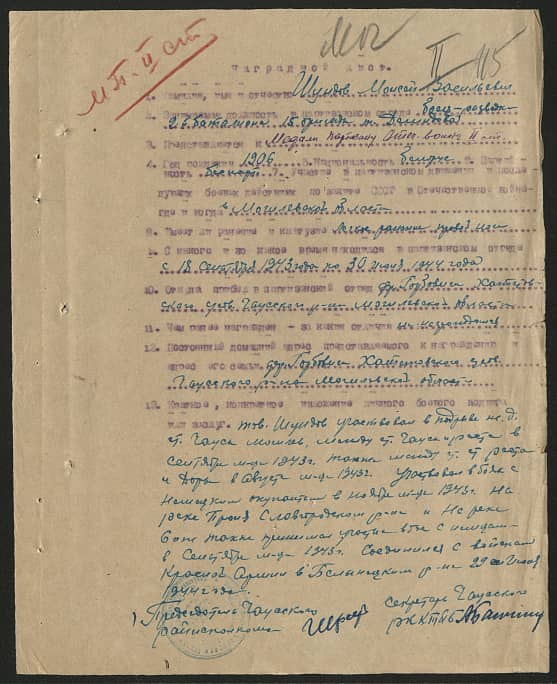 М.П. II ст
II 115
Наградной лист.
1. Фамилия, имя и отчество Шундов Моисей Васильевич
2. Занимаемая должность в партизанском отряде Боец-развед.
2й баталиона 15 бригады
3. Представляется к Медали партизану Отеч. войны II ст.
4. Год рождения 1906 5. Национальность Белорус 6. Партий-
ность Беспарт 7. Участие в партизанском движении и после-
дующих боевых действиях по защите СССР в Отечественной войне-
где и когда в Могилевской области
8. Имеет ли ранение и контузию
9. С какого и по какое время находился в партизанском отряде
с 18 сентября 1943 года по 30 июня 1944 года
10. Откуда прибыл в партизанский отряд дер. Горбовичи
ского с/сов. Чаусского р-на Могилевской области
11. Чем ранее награжден - за какие отличия не награждался
12. Постоянный домашний адрес представляемого к награждению и
адрес его семьи. дер. Горбовичи с/сов
Чаусского р-на Могилевской области
13. Краткое, конкретное изложение личного боевого подвига
или заслуг. тов. Шундов участвовал в подрыве ж.д.
ст. Чаусы между ст. Чаусы и Реста в
сентябре м-це 1943г. также между ст. ст. Реста
и в августе м-це 1943г. Участвовал в боях с
немецким в ноябре м-це 1943г. На
реке Проня Славгородском р-не и на реке
также принимал участие в бою с немцами
в сентябре м-це 1943г. Соединился с войсками
Красной Армии в Белыничском р-не 29 Июня
1944 года.
Председатель Чаусского секретарь Чаусского
райисполкома РК КП(б)Б